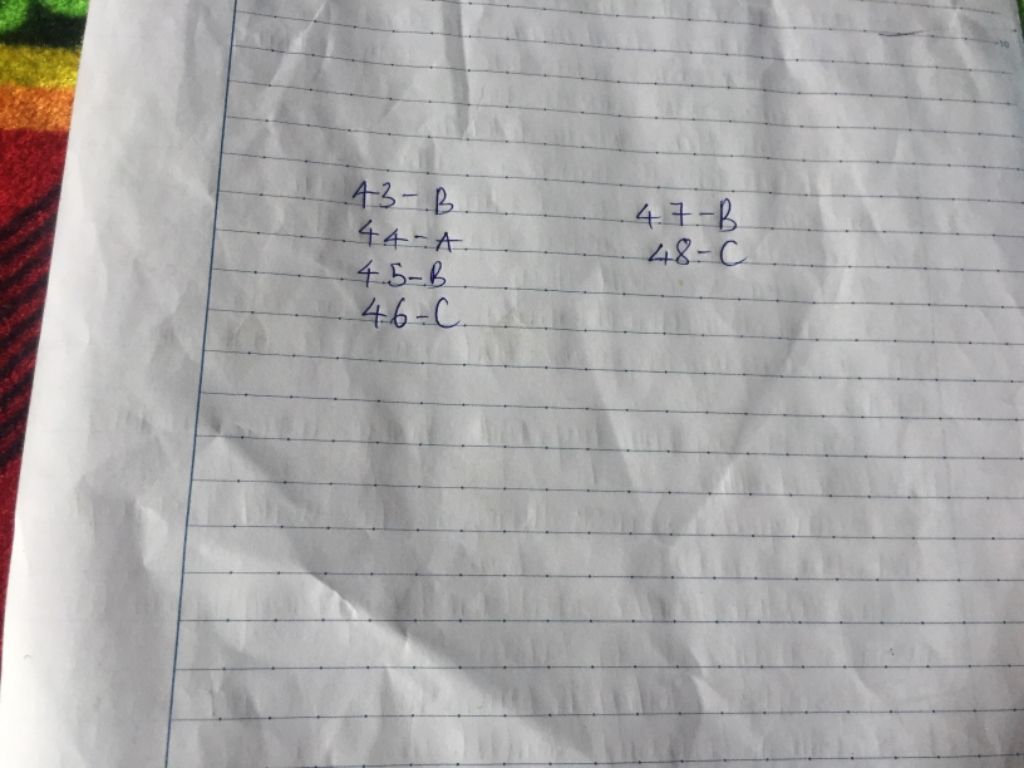 43-B
44-A
45-B
46-C
47-B
48-C